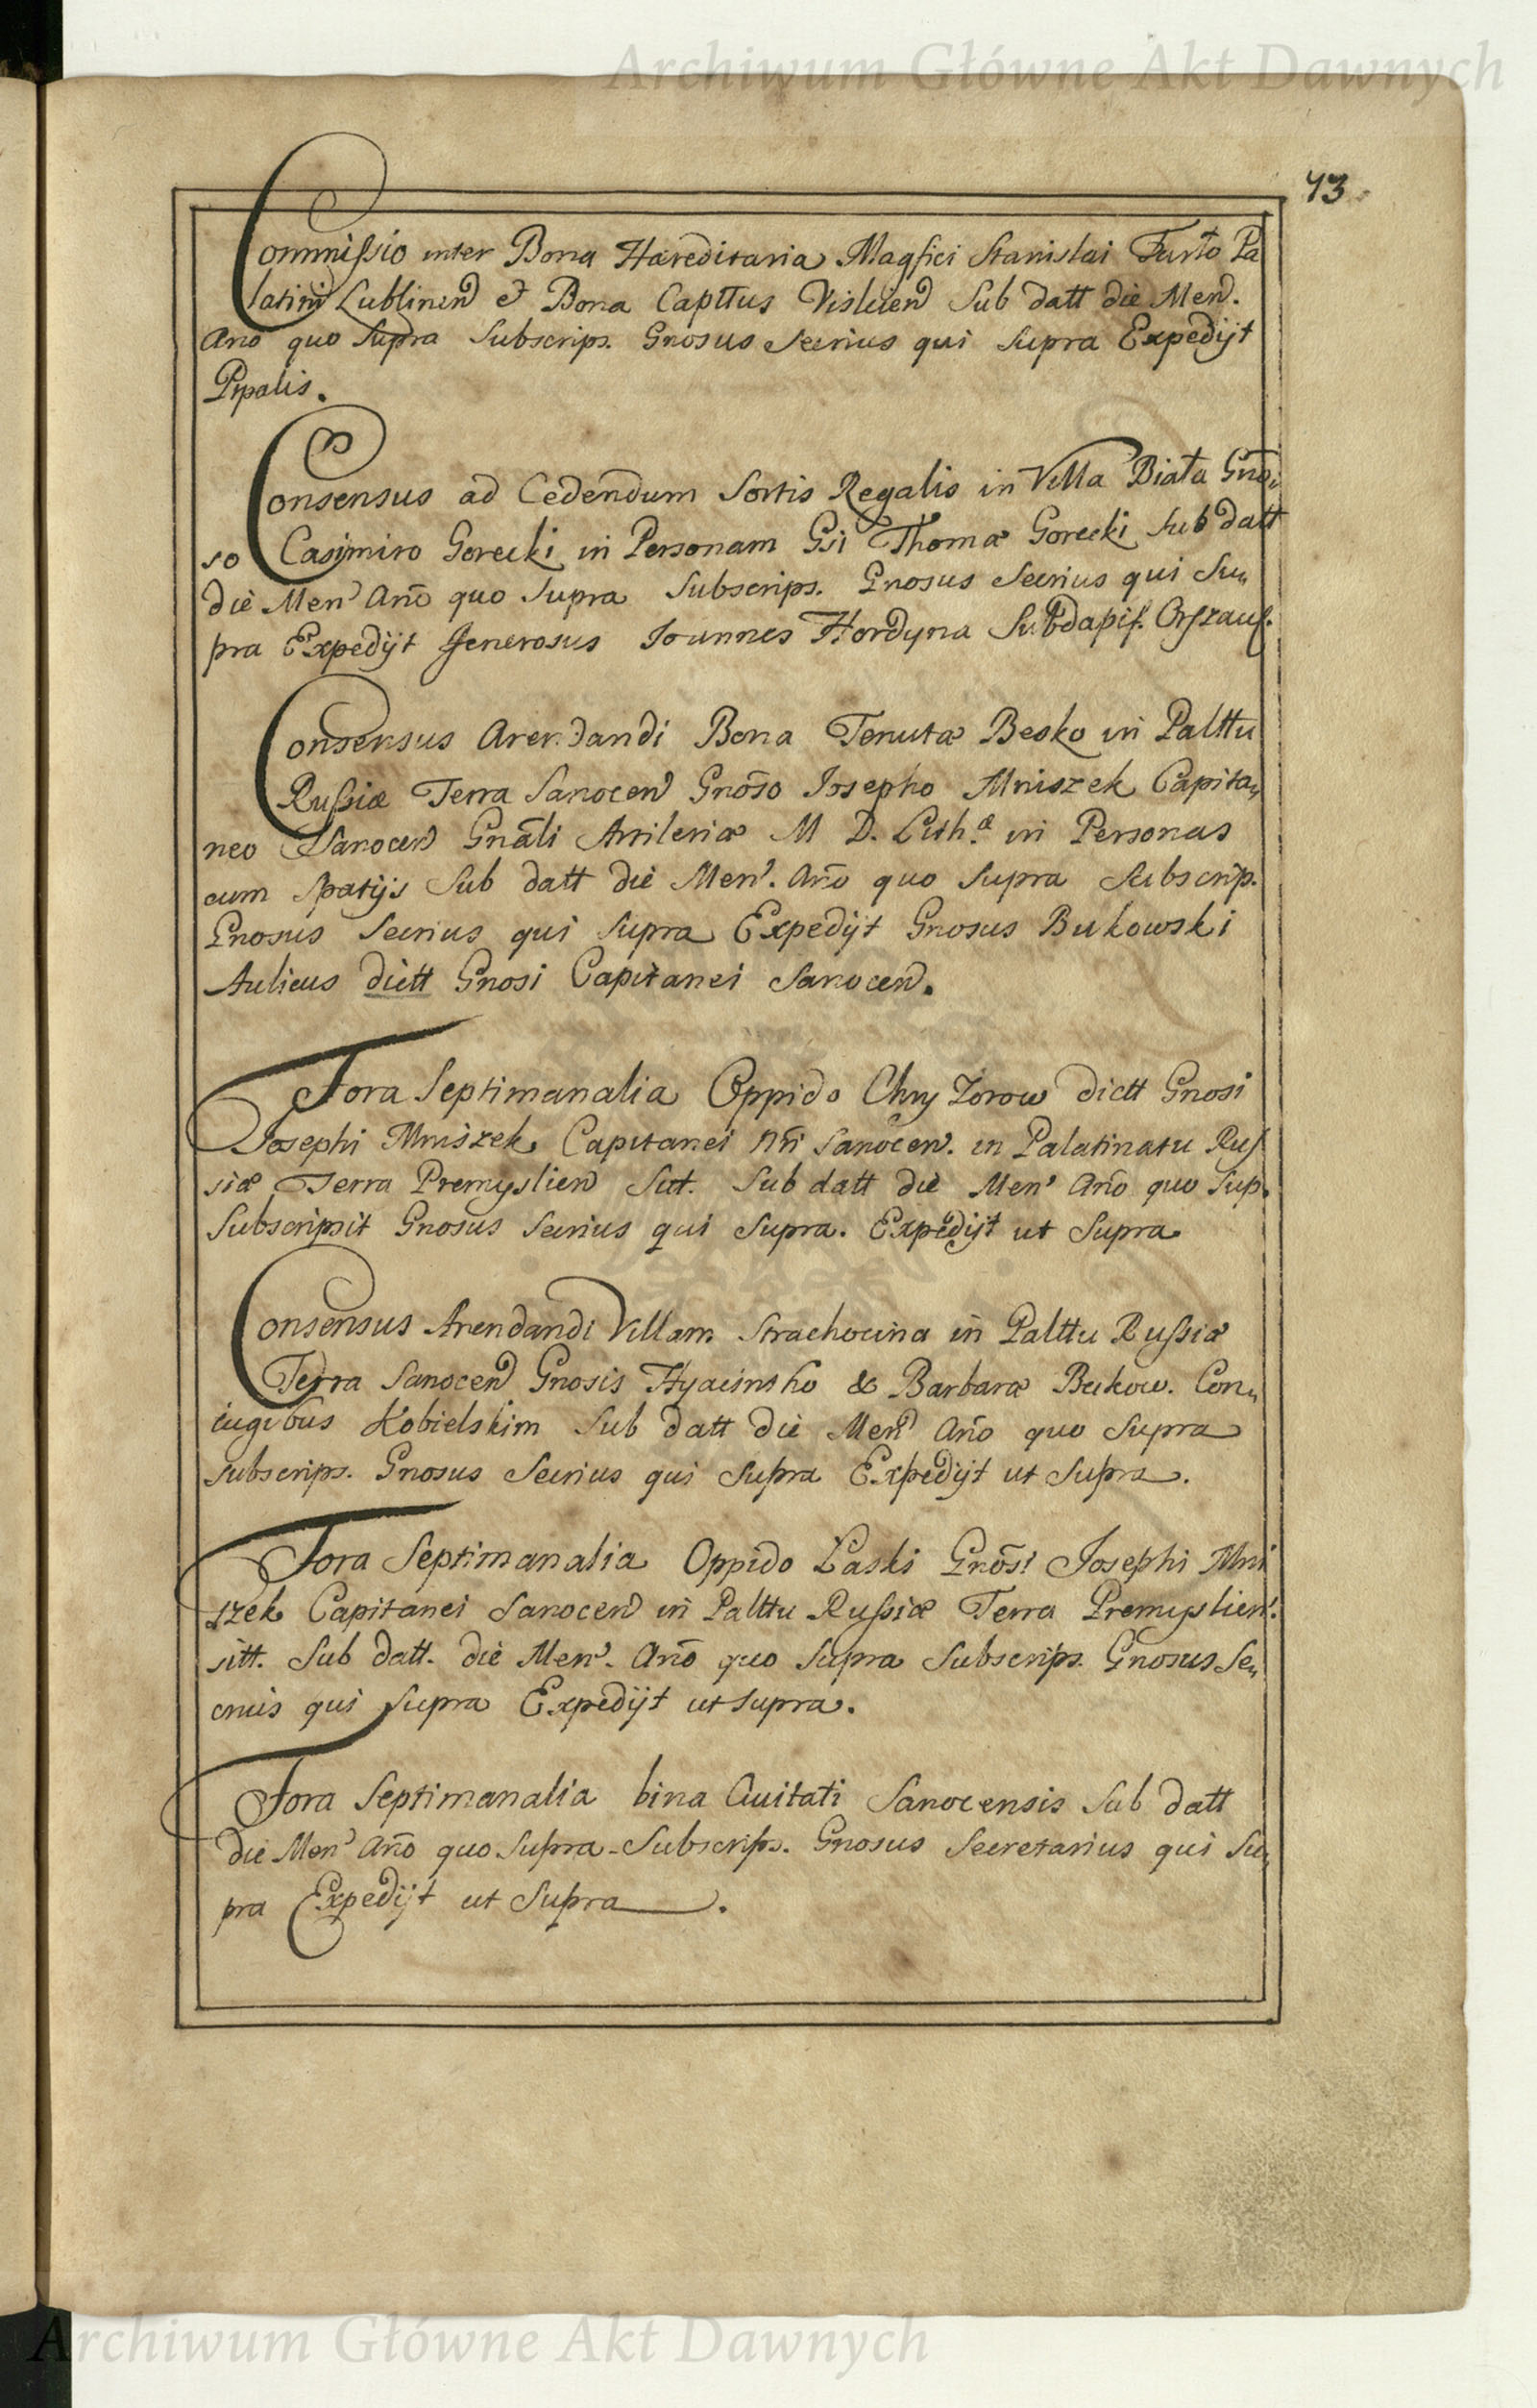 Archiwum Główne Akt Dawnych
73.
Commissio inter Bona Hæreditaria Magfici Stanislai Tarło Pa
latini Lublinen et Bona Capttus Vislicien Sub datt die Men.
Año quo Supra Subscrips. Gnosus Secrius qui Supra Expedijt
Ppalis.
Consensus ad Cedendum Sortis Regalis in Villa Biała Gño,
so Casimiro Gorecki in Personam Gsi Thomæ Gorecki Sub datt
die Men Año quo Supra Subscrips. Gnosus Secrius qui Su,
pra Expedijt Generosus Ioannes Hordyna Subdapif. Orszans.
Consensus Arendandi Bona Tenutæ Besko in Palttu
Russiæ Terra Sanocen Gnõso Iosepho Mniszek Capita,
neo Sanocen Gnãli Artileriæ M D. Lith.æ in Personas
cum Spatijs Sub datt die Men. Año quo Supra Subscrip.
Gnosus Secrius qui Supra Expedijt Gnosus Bukowski
Aulicus dictt Gnosi Capitanei Sanocen.
Fora Septimanalia Oppido Chyżorow dictt Gnosi
Josephi Mniszek Capitanei Nri Sanocen. in Palatinatu Rus
siæ Terra Premyslien Sitt. Sub datt die Men Año quo Sup.
Subscripsit Gnosus Secrius qui Supra. Expedijt ut Supra
Consensus Arendandi Villam Strachocina in Palttu Russiæ
Terra Sanocen Gnosis Hyacintho & Barbaræ Bukow. Con,
iugibus Kobielskim Sub datt die Men Año quo Supra
Subscrips. Gnosus Secrius qui Supra Expedijt ut Supra.
Fora Septimanalia Oppido Laski Gnõsi Josephi Mni
szek Capitanei Sanocen in Palttu Russiæ Terra Premyslien.
sitt. Sub datt. die Men. Año quo Supra Subscrips. Gnosus Se,
crius qui Supra Expedijt ut Supra.
Fora Septimanalia bina Civitati Sanocensis Sub datt
die Men Año quo Supra Subscrips. Gnosus Secretarius qui Su,
pra Expedijt ut Supra.
Archiwum Główne Akt Dawnych